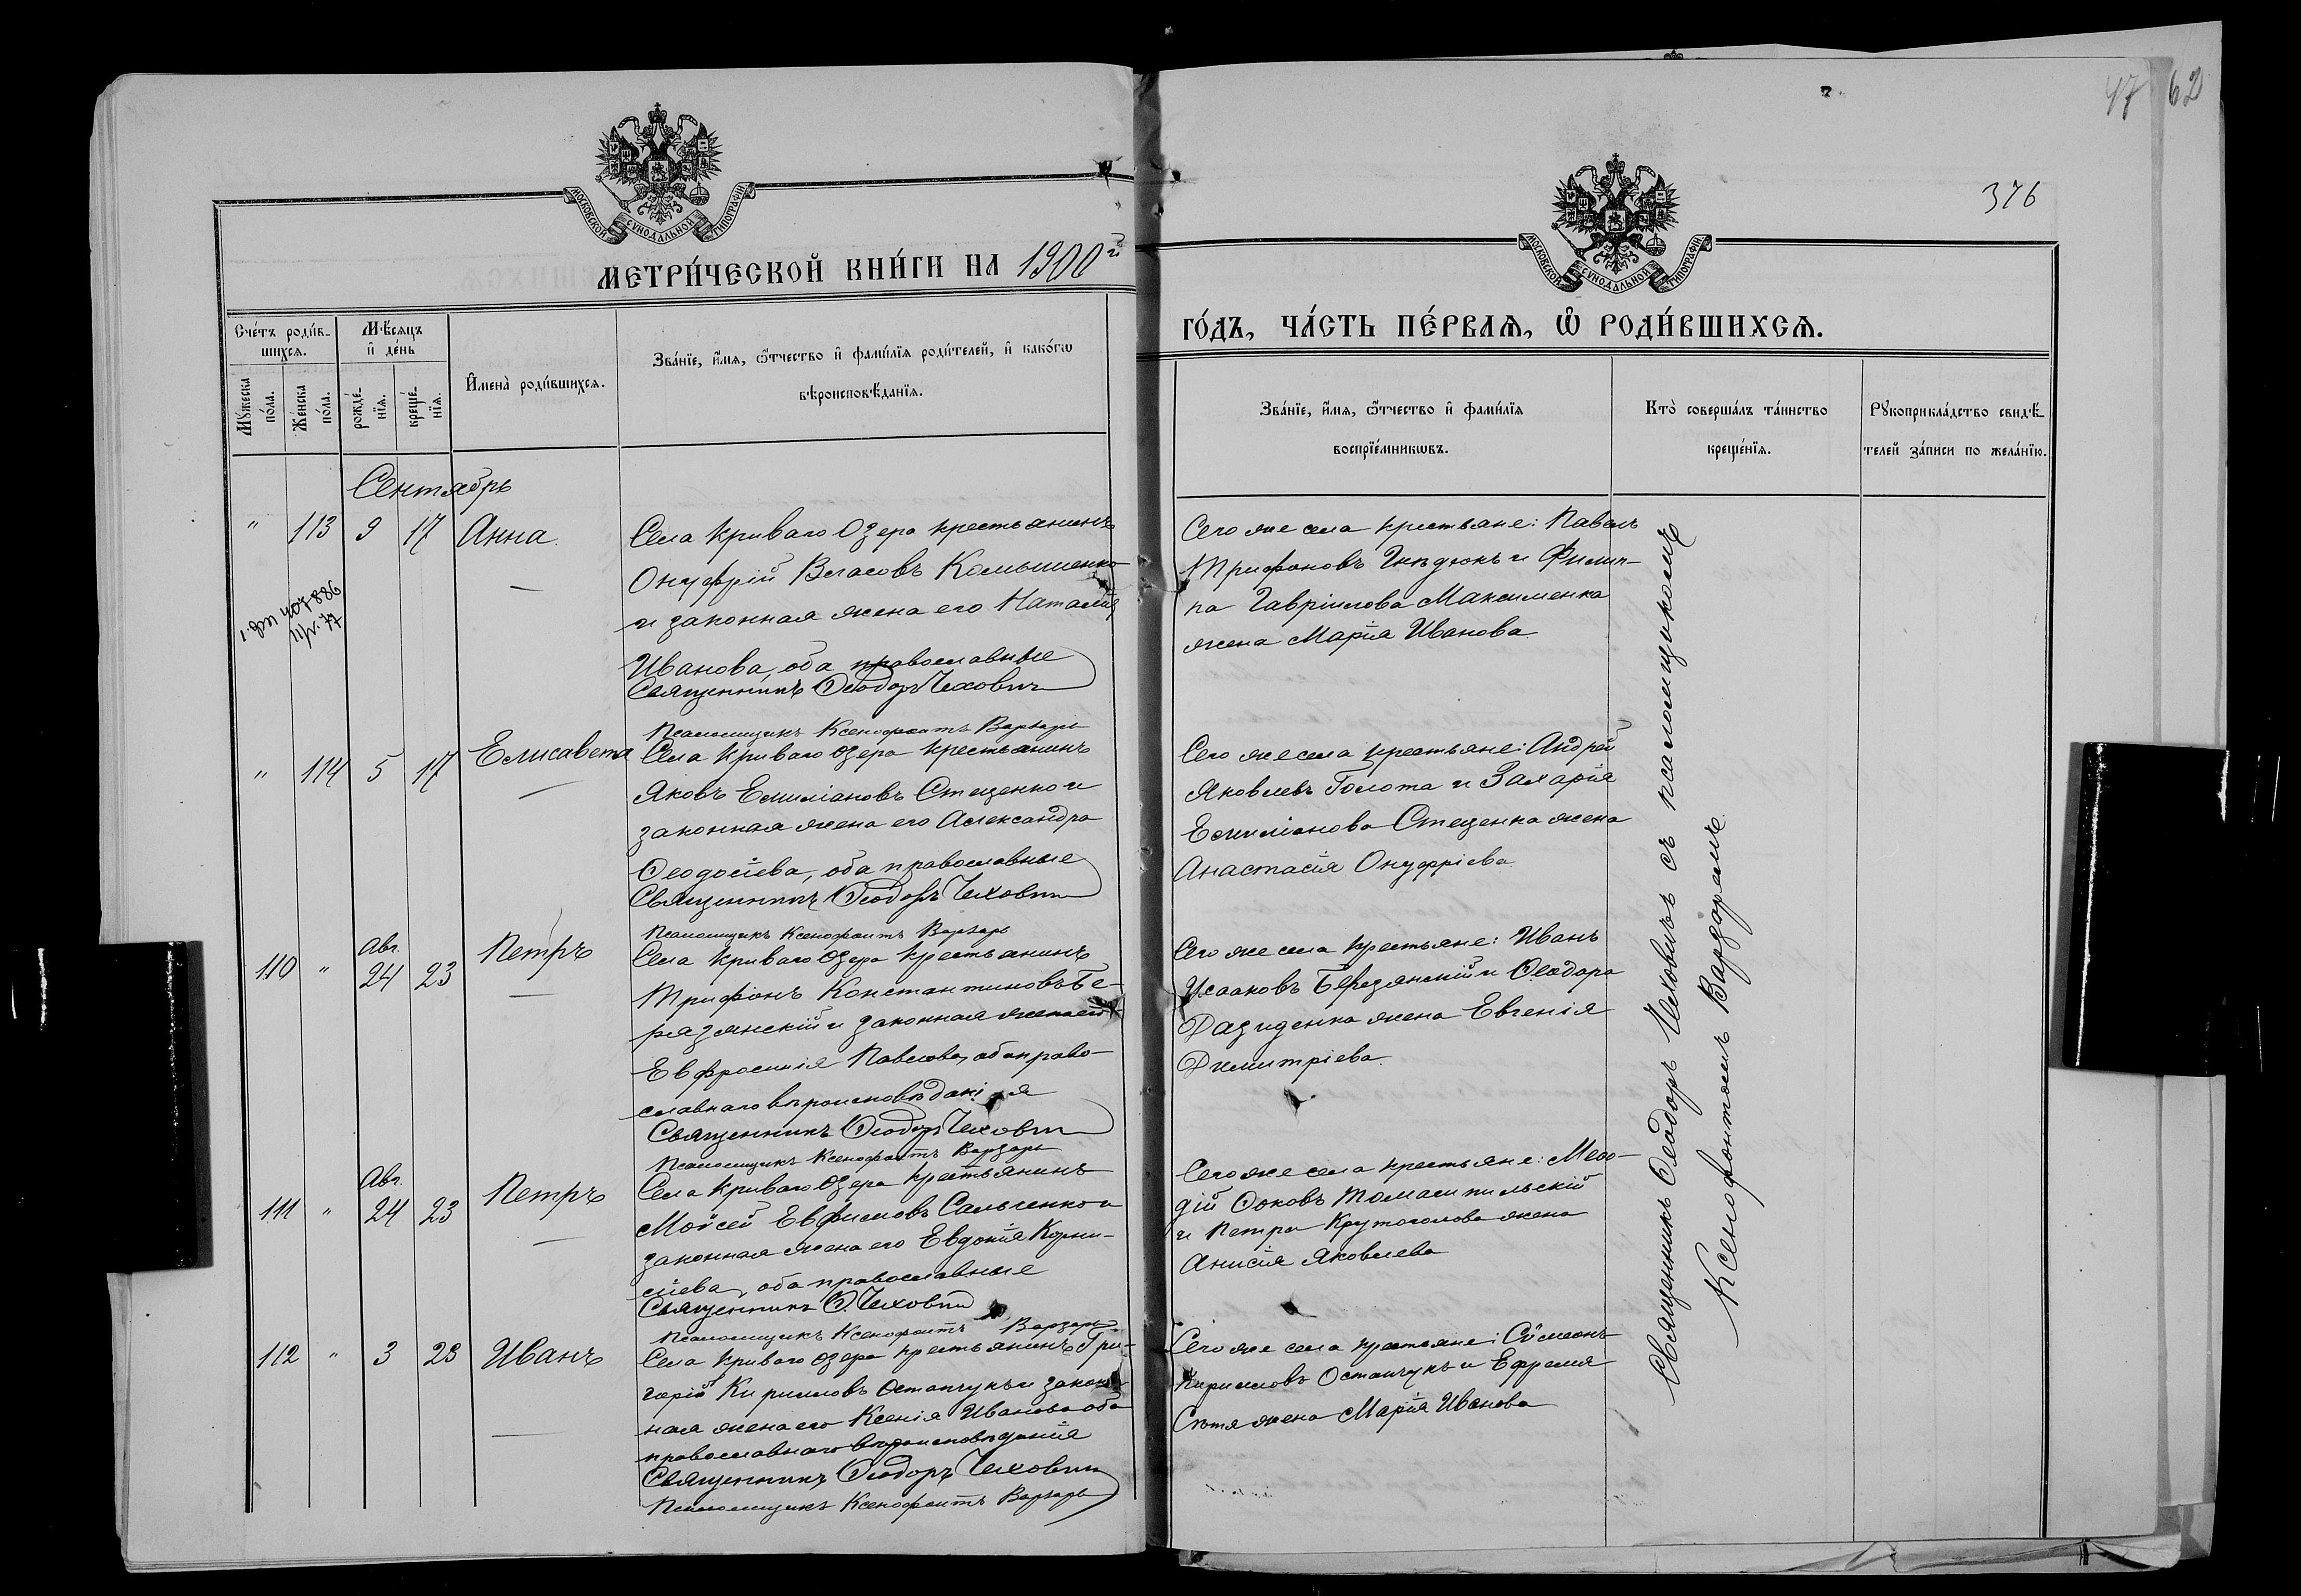 47 62
376
МОСКОВСКОЙ СУНОДАЛЬНОЙ ТИПОГРАФІИ
МОСКОВСКОЙ СУНОДАЛЬНОЙ ТИПОГРАФІИ
МЕТРИ́ЧЕСКОЙ КНИ́ГИ НА 1900й
ГО́ДЪ, ЧА́СТЬ ПЕ́РВАѦ, Ѽ РОДИ́ВШИХСѦ.
Сче́тъ роди́в-
шихсѧ.
Мѣ́сѧцъ
и҆ де́нь
Мꙋ́жеска
по́ла.
Же́нска
по́ла.
рожде́-
нїѧ.
креще́-
нїѧ.
И҆мена̀ роди́вшихсѧ.
Зва́нїе, и҆́мѧ, ѻ҆́тчество и҆ фами́лїѧ роди́телей, и҆ како́гѡ
вѣроисповѣ́данїѧ.
Зва́нїе, и҆́мѧ, ѻ҆́тчество и҆ фами́лїѧ
воспрїе́мникѡвъ.
Кто̀ соверша́лъ та́инство
креще́нїѧ.
Рꙋкоприкла́дство свидѣ́-
телей за́писи по жела́нїю.
Сентябрь
" 113 9 17 Анна.
Села Криваго Озера крестьянинъ
Онуфрій Власовъ Комышенко
и законная жена его Наталія
Иванова, оба православные
Священникъ Ѳеодоръ Чеховичъ
Псаломщикъ Ксенофонтъ Варзарь
Сего же села крестьяне: Павелъ
Трифоновъ Гнѣдюкъ и Филип-
па Гавріилова Максименка
жена Марія Иванова
" 114 5 17 Елисавета
Села Криваго Озера крестьянинъ
Яковъ Емиліановъ Стеценко и
законная жена его Александра
Ѳеодосіева, оба православные
Священникъ Ѳеодоръ Чеховичъ
Псаломщикъ Ксенофонтъ Варзарь
Сего же села крестьяне: Андрей
Яковлевъ Голота и Захарія
Емиліанова Стеценка жена
Анастасія Онуфріева.
110 " Авг. 24 23 Петръ
Села Криваго Озера крестьянинъ
Трифонъ Константиновъ Бе-
рязянскій и законная жена его
Евфросинія Павлова, оба право-
славнаго вѣроисповѣданія
Священникъ Ѳеодоръ Чеховичъ
Псаломщикъ Ксенофонтъ Варзарь
Сего же села крестьяне: Иванъ
Исааковъ Березянскій и Ѳеодора
жена Евгенія
Димитріева.
111 " Авг. 24 23 Петръ
Села Криваго Озера крестьянинъ
Мойсей Евфимовъ Сальченко и
законная жена его Евдокія Корни-
ліева, оба православные
Священникъ Ѳ. Чеховичъ
Псаломщикъ Ксенофонтъ Варзарь
Сего же села крестьяне: Меѳо-
дій Ѳоковъ Томашпильскій
и Петра Крутоголова жена
Анисія Яковлева
112 " 3 23 Иванъ
Села Криваго Озера крестьянинъ Гри-
горій Кирилловъ Остапчукъ и закон-
ная жена его Ксенія Иванова оба
православнаго вѣроисповѣданія
Священникъ Ѳеодоръ Чеховичъ
Псаломщикъ Ксенофонтъ Варзарь
Сего же села крестьяне: Сѵмеонъ
Кирилловъ Остапчукъ и Ефрема
жена Марія Иванова
Священникъ Ѳеодоръ Чеховичъ съ псаломщикомъ
Ксенофонтомъ Варзаремъ.